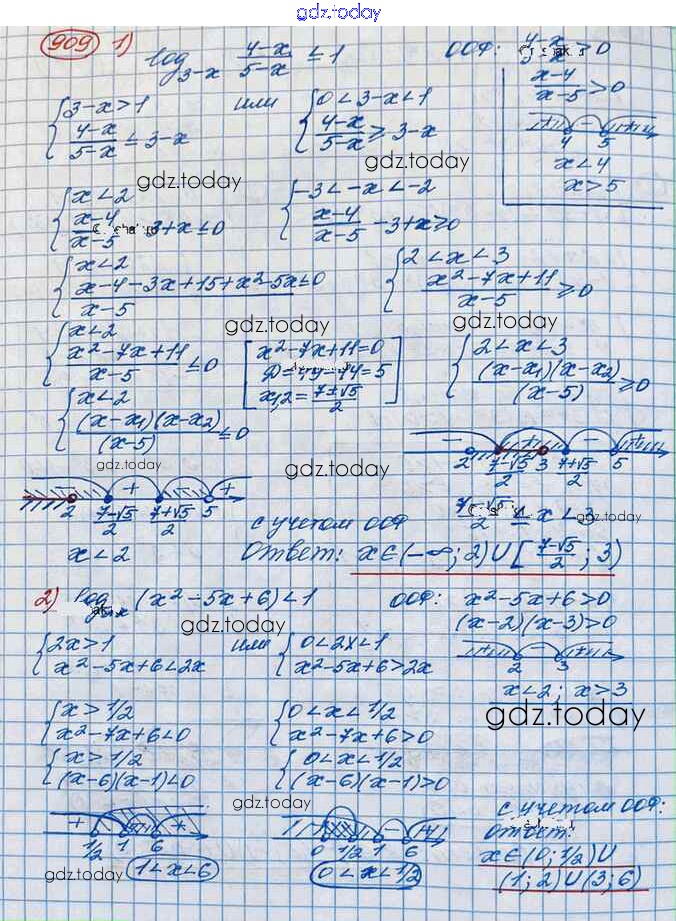 gdz.today
909 1) log₃₋ₓ (4-x)/(5-x) ≤ 1
ООФ: (4-x)/ > 0
(x-4)/(x-5) > 0
4 5
x < 4
x > 5
{ 3-x > 1
(4-x)/(5-x) ≤ 3-x
или
{ 0 < 3-x < 1
(4-x)/(5-x) ≥ 3-x
gdz.today
gdz.today
{ x < 2
(x-4)/(x-5) - 3+x ≤ 0
{ -3 < -x < -2
(x-4)/(x-5) - 3+x ≥ 0
{ x < 2
(x-4-3x+15+x²-5x)/(x-5) ≤ 0
{ 2 < x < 3
(x²-7x+11)/(x-5) ≥ 0
gdz.today
gdz.today
{ x < 2
(x²-7x+11)/(x-5) ≤ 0
[ x²-7x+11=0
D=49-44=5
x₁,₂=(7±√5)/2 ]
{ 2 < x < 3
(x-x₁)(x-x₂)/(x-5) ≥ 0
{ x < 2
(x-x₁)(x-x₂)/(x-5) ≤ 0
gdz.today
gdz.today
- + - +
2 (7-√5)/2 3 (7+√5)/2 5
- + - +
2 (7-√5)/2 (7+√5)/2 5
x < 2
с учетом ООФ
(7-√5)/2 ≤ x < 3
gdz.today
Ответ: x∈(-∞; 2)∪[(7-√5)/2; 3)
2) log (x²-5x+6) < 1
ООФ: x²-5x+6 > 0
(x-2)(x-3) > 0
gdz.today
2 3
x < 2; x > 3
{ 2x > 1
x²-5x+6 < 2x
или
{ 0 < 2x < 1
x²-5x+6 > 2x
gdz.today
{ x > 1/2
x²-7x+6 < 0
{ 0 < x < 1/2
x²-7x+6 > 0
{ x > 1/2
(x-6)(x-1) < 0
{ 0 < x < 1/2
(x-6)(x-1) > 0
gdz.today
+ - +
1/2 1 6
1 < x < 6
0 1/2 1 6
0 < x < 1/2
с учетом ООФ:
Ответ:
x∈(0; 1/2)∪
(1; 2)∪(3; 6)
gdz.today
gdz.today